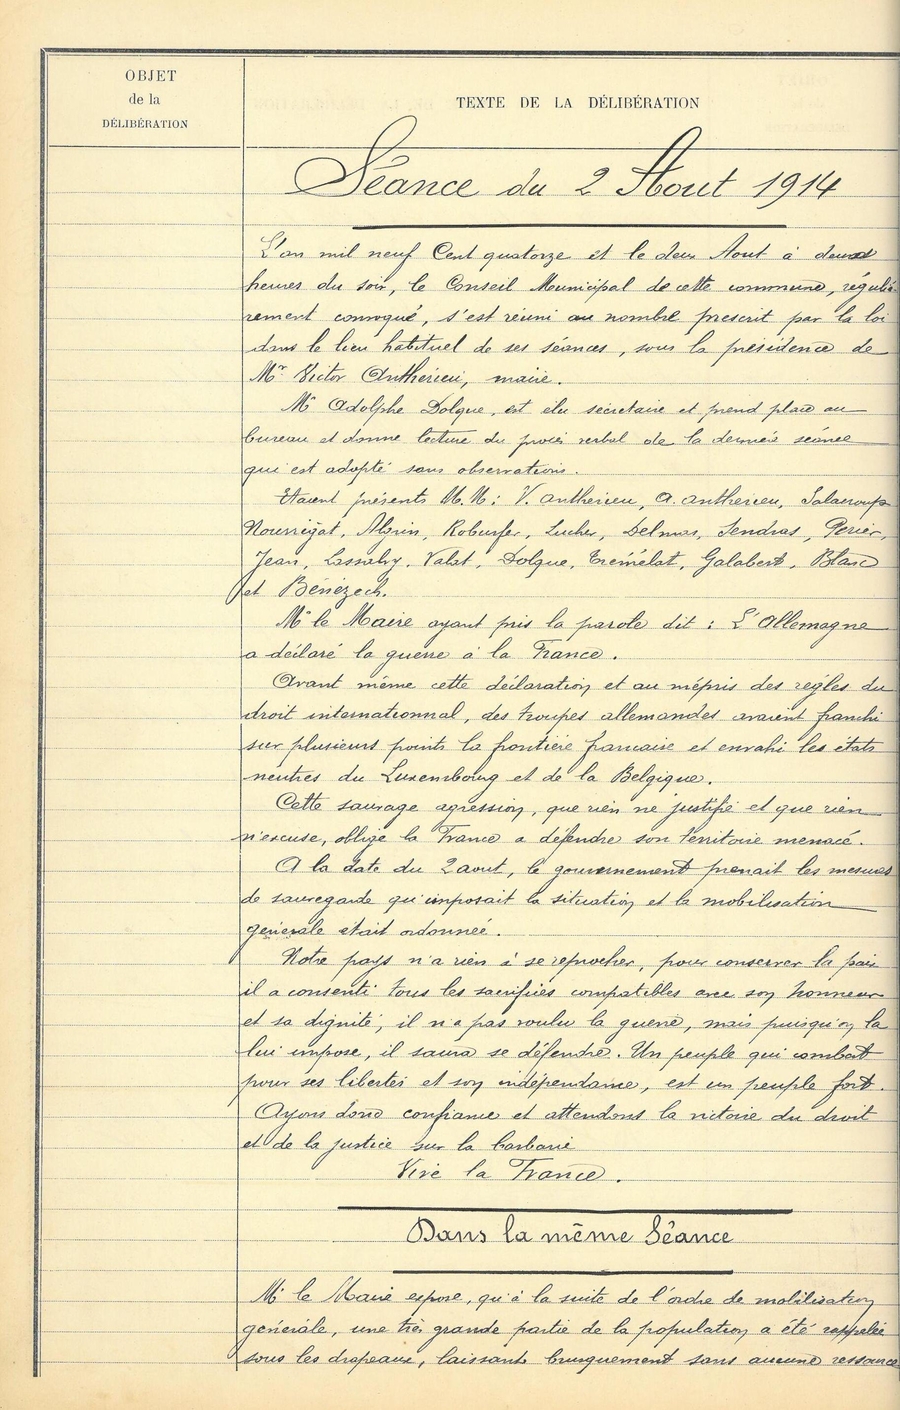 OBJET
de la
DÉLIBÉRATION
TEXTE DE LA DÉLIBÉRATION
Séance du 2 Aout 1914
L'an mil neuf Cent quatorze et le deux Aout à deux
heures du soir, le Conseil Municipal de cette commune, réguliè-
rement convoqué, s'est réuni au nombre prescrit par la loi
dans le lieu habituel de ses séances, sous la présidence de
Mr Victor Anthérieu, maire.
Mr Adolphe Dolque, est élu secrétaire et prend place au
bureau et donne lecture du procès verbal de la dernière séance
qui est adopté sans observations.
Etaient présents M.M: V. Anthérieu, A. Anthérieu, Salacroup
Nourrigat, Lucher, Delmas, Sendras, Périer,
Jean, Valat, Dolque, Trémélat, Galabert, Blanc
et Bénézech.
Mr le Maire ayant pris la parole dit : L'Allemagne
a déclaré la guerre à la France.
Avant même cette déclaration et au mépris des regles du
droit internationnal, des troupes allemandes avaient franchi
sur plusieurs points la frontière francaise et envahi les états
neutres du Luxembourg et de la Belgique.
Cette sauvage agression, que rien ne justifie et que rien
n'excuse, oblige la France a défendre son territoire menacé.
A la date du 2 aout, le gouvernement prenait les mesures
de sauvegarde qu'imposait la situation et la mobilisation
générale était ordonnée.
Notre pays n'a rien à se reprocher, pour conserver la paix
il a consenti tous les sacrifices compatibles avec son honneur
et sa dignité, il n'a pas voulu la guerre, mais puisqu'on la
lui impose, il saura se défendre. Un peuple qui combat
pour ses libertés et son indépendance, est un peuple fort.
Ayons donc confiance et attendons la victoire du droit
et de la justice sur la barbarie
Vive la France.
Dans la même Séance
Mr le Maire expose, qu'à la suite de l'ordre de mobilisation
générale, une très grande partie de la population a été rappelée
sous les drapeaux, laissant brusquement sans aucune ressource